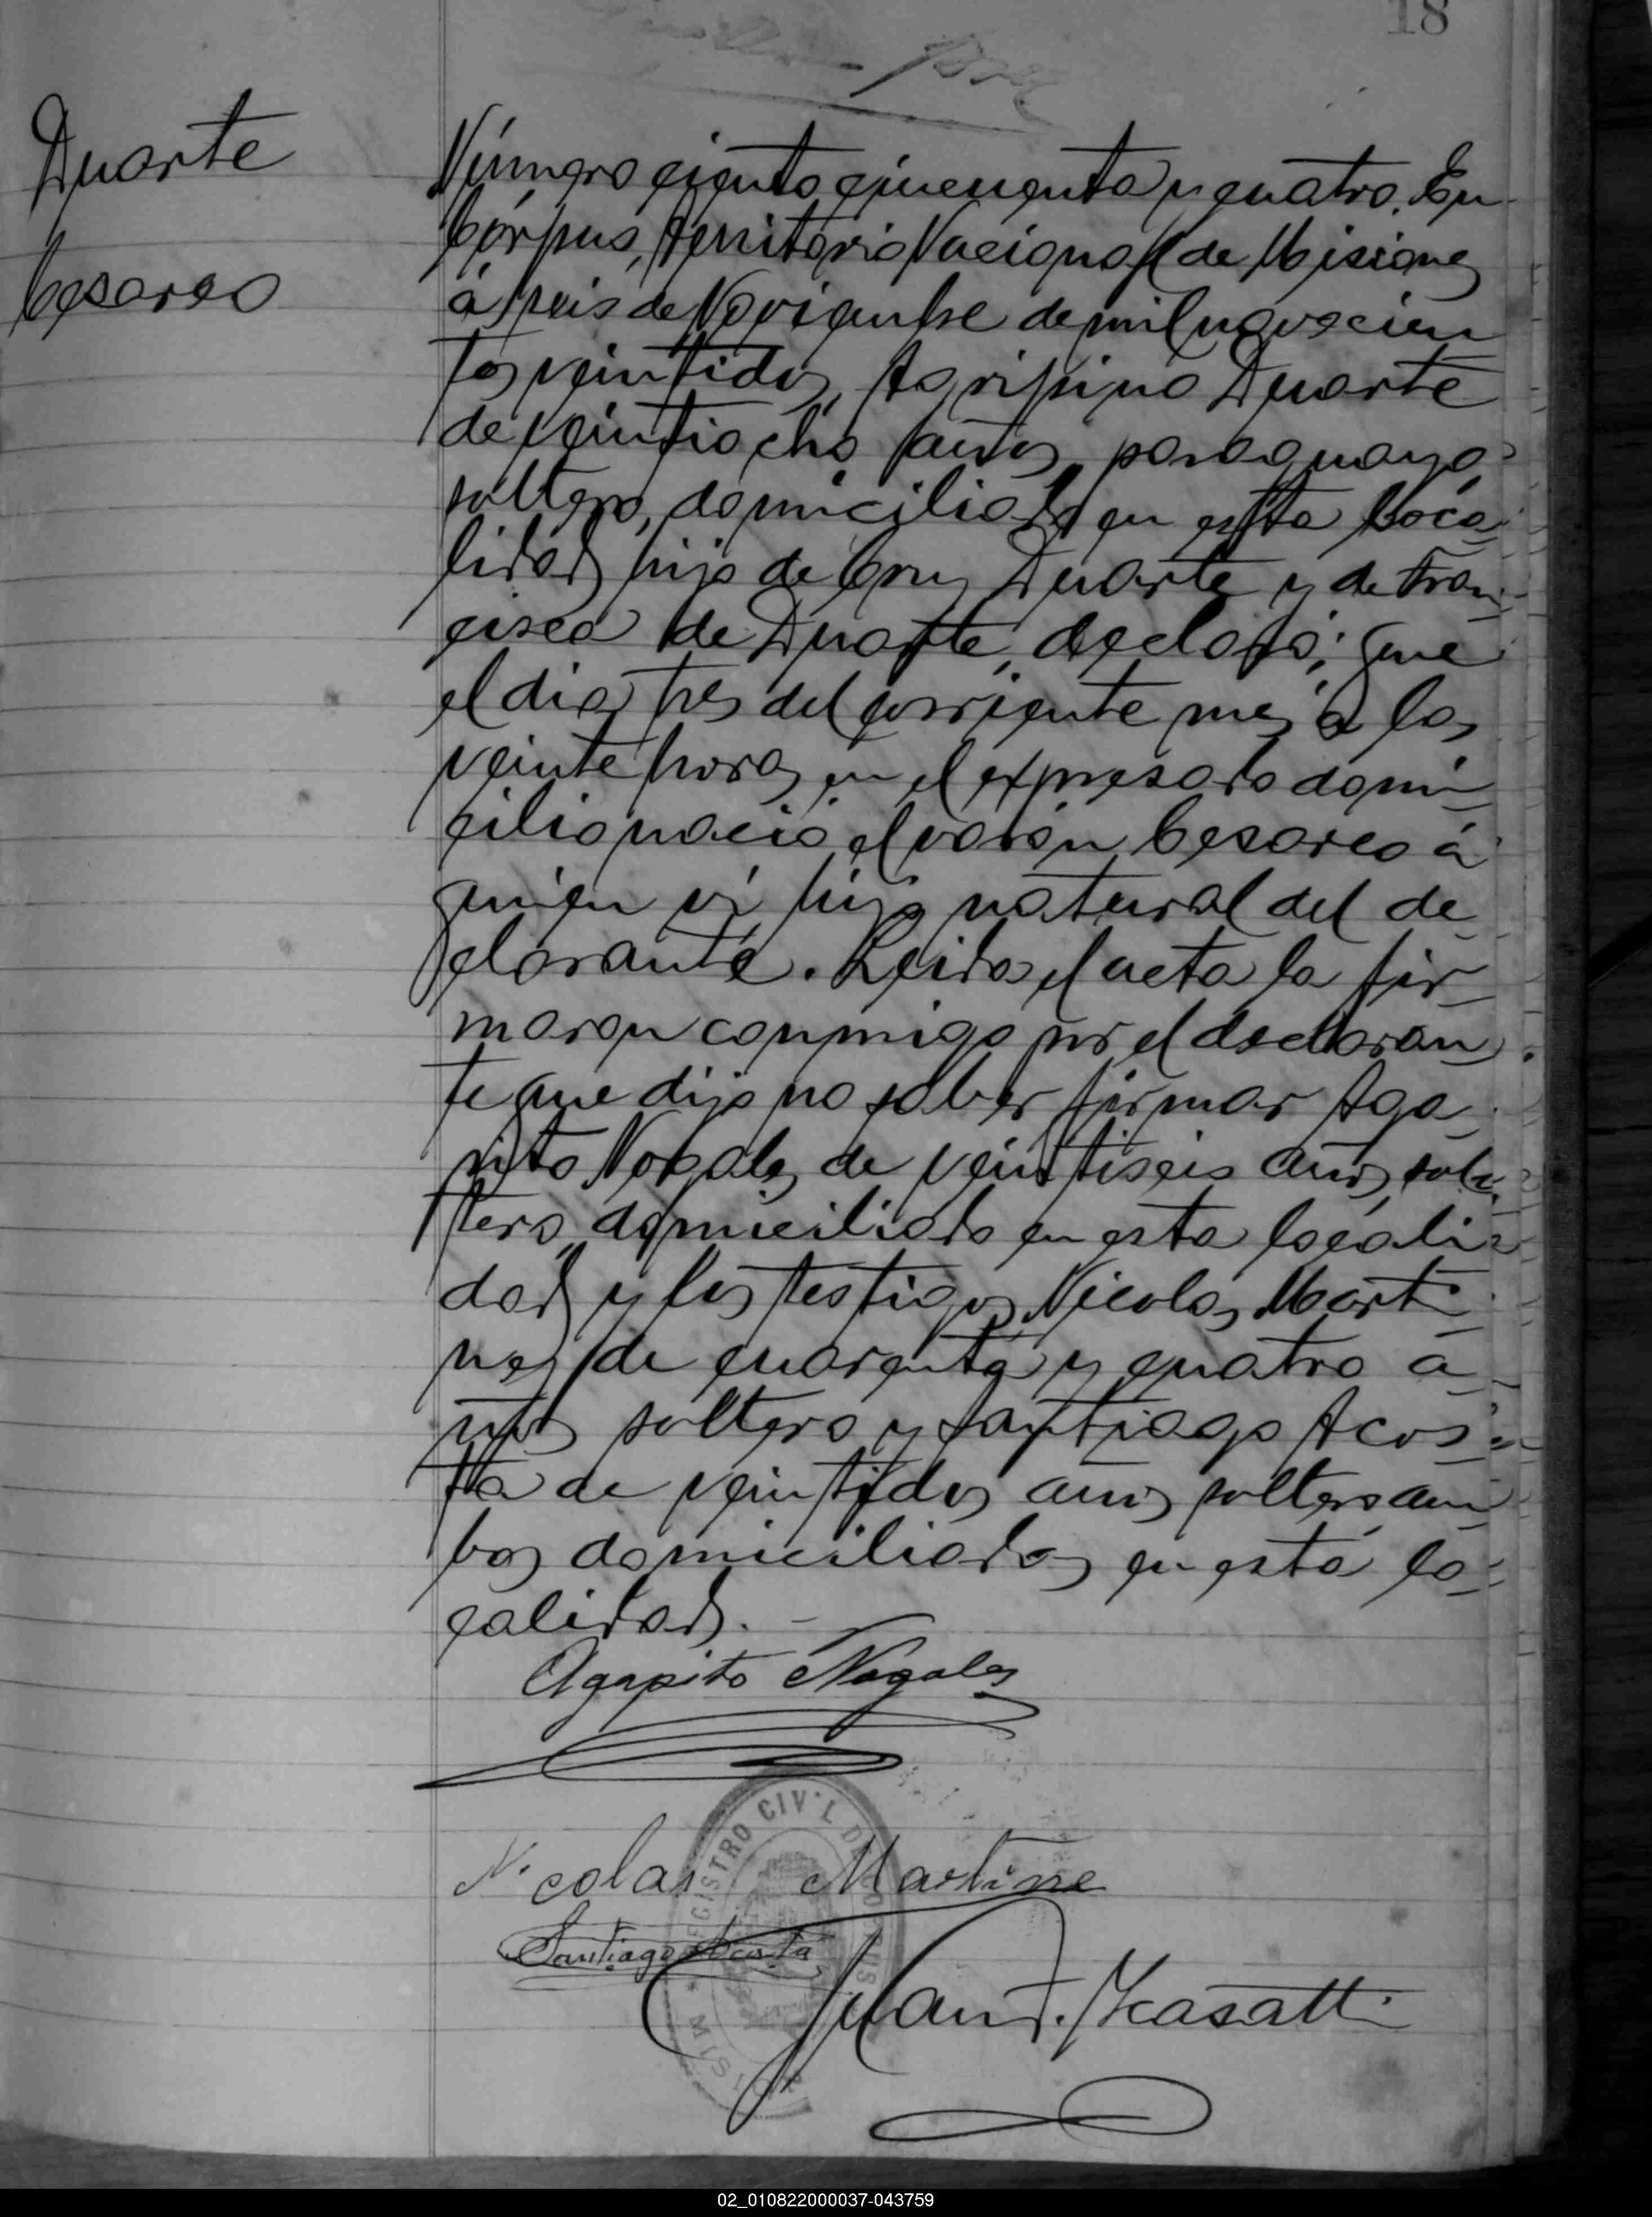 18
Duarte
Cesareo
Número ciento cincuenta y cuatro. En
Córpus, Territorio Nacional de Misiones
á seis de Noviembre de mil novecien
tos veintidos, Agripino Duarte
de veintiocho años, paraguayo
soltero, domiciliado en esta loca
lidad hijo de Cruz Duarte y de Fran
cisca de Duarte, declaró: Que
el dia tres del corriente mes á las
veinte horas en el expresado domi
cilio nació el varón Cesareo á
quien ví hijo natural del de
clarante. Leida el acta la fir
maron conmigo por el declaran
te que dijo no saber firmar Aga
pito Nogales de veintiseis años, sol
tero, domiciliado en esta locali
dad y los testigos Nicolas Marti
nez de cuarenta y cuatro a
ños soltero y Santiago Acos
ta de veintidos años soltero am
bos domiciliados en esta lo
calidad. -
Agapito Nogales
Nicolas Martine
Santiago Acosta
Juan F. Casatti
REGISTRO CIVIL DE CORPUS
* MISIONES
02_010822000037-043759